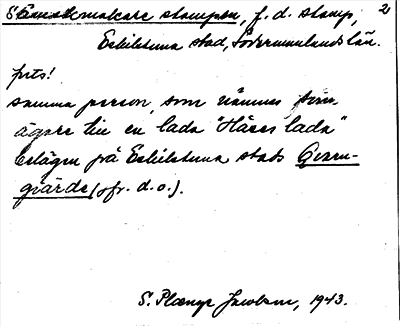 Stenmakare stampen, f.d. stamp, 2
Eskilstuna stad, Södermanlands län.
forts!
samma person, som nämnes som
ägare till en lada "Håres lada"
belägen på Eskilstuna stads Qvarn-
gärde (jfr. d.o.).
S. Plænge Jacobson, 1943.